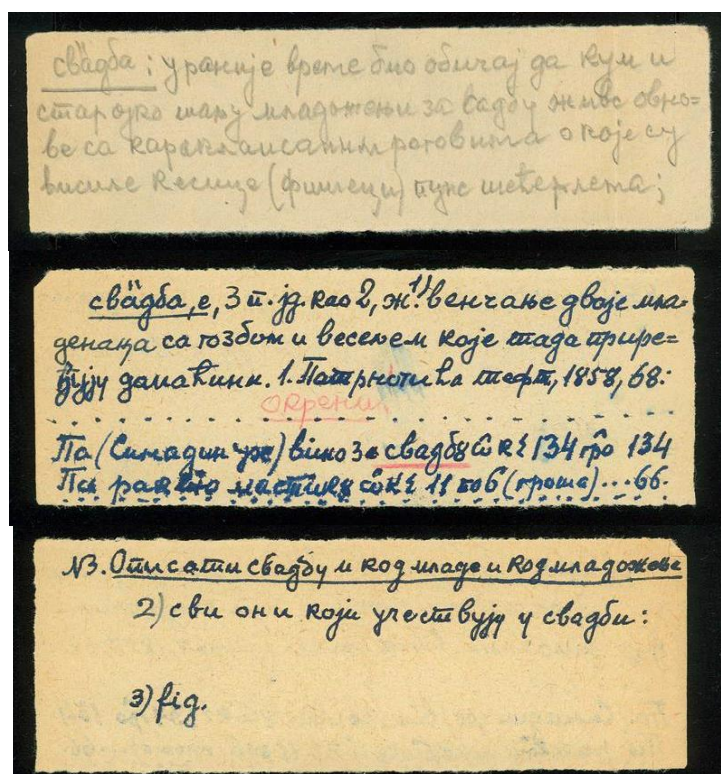 сва̏дба: у раније време био обичај да кум и
старојко шаљу младожењи за свадбу живе овно=
ве са искићеним роговима о које су
висиле кесице (фишеци) пуне шећерлета;
свȁдба, е, 3 п. јд. као 2, ж. 1) венчање двоје мла-
денаца са гозбом и весељем које тада прире=
ђују домаћини. 1. Патрногића тефт, 1858, 68:
окрени
Па (Симадин ује) віно за свадбу ѿ к҃г 134 гро 134
Па ракію мастику ѿ к҃г 11 по 6 (гроша) ... 66.
N3. Описати свадбу и код младе и код младожење
2) сви они који учествују у свадби:
3) fig.